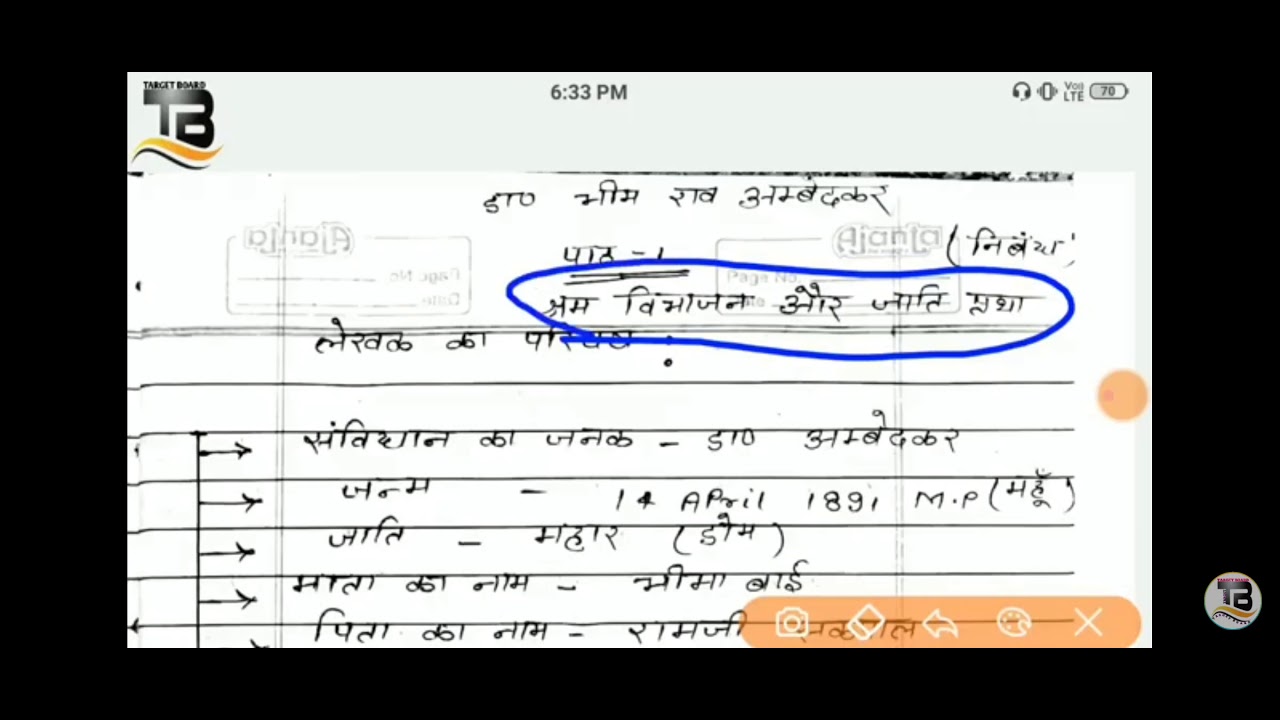 TARGET BOARD
TB
6:33 PM
Voi) LTE 70
डा० भीम राव अम्बेदकर
Ajanta Ajanta
पाठ - 1 (निबंध)
Page No. Page No.
श्रम विभाजन और जाति प्रथा
Date
लेखक का परिचय :
संविधान का जनक - डा० अम्बेदकर
जन्म - 14 APril 1891 M.P (महूँ)
जाति - महार (डोम)
माता का नाम - भीमा बाई
पिता का नाम - रामजी सकपाल
TB